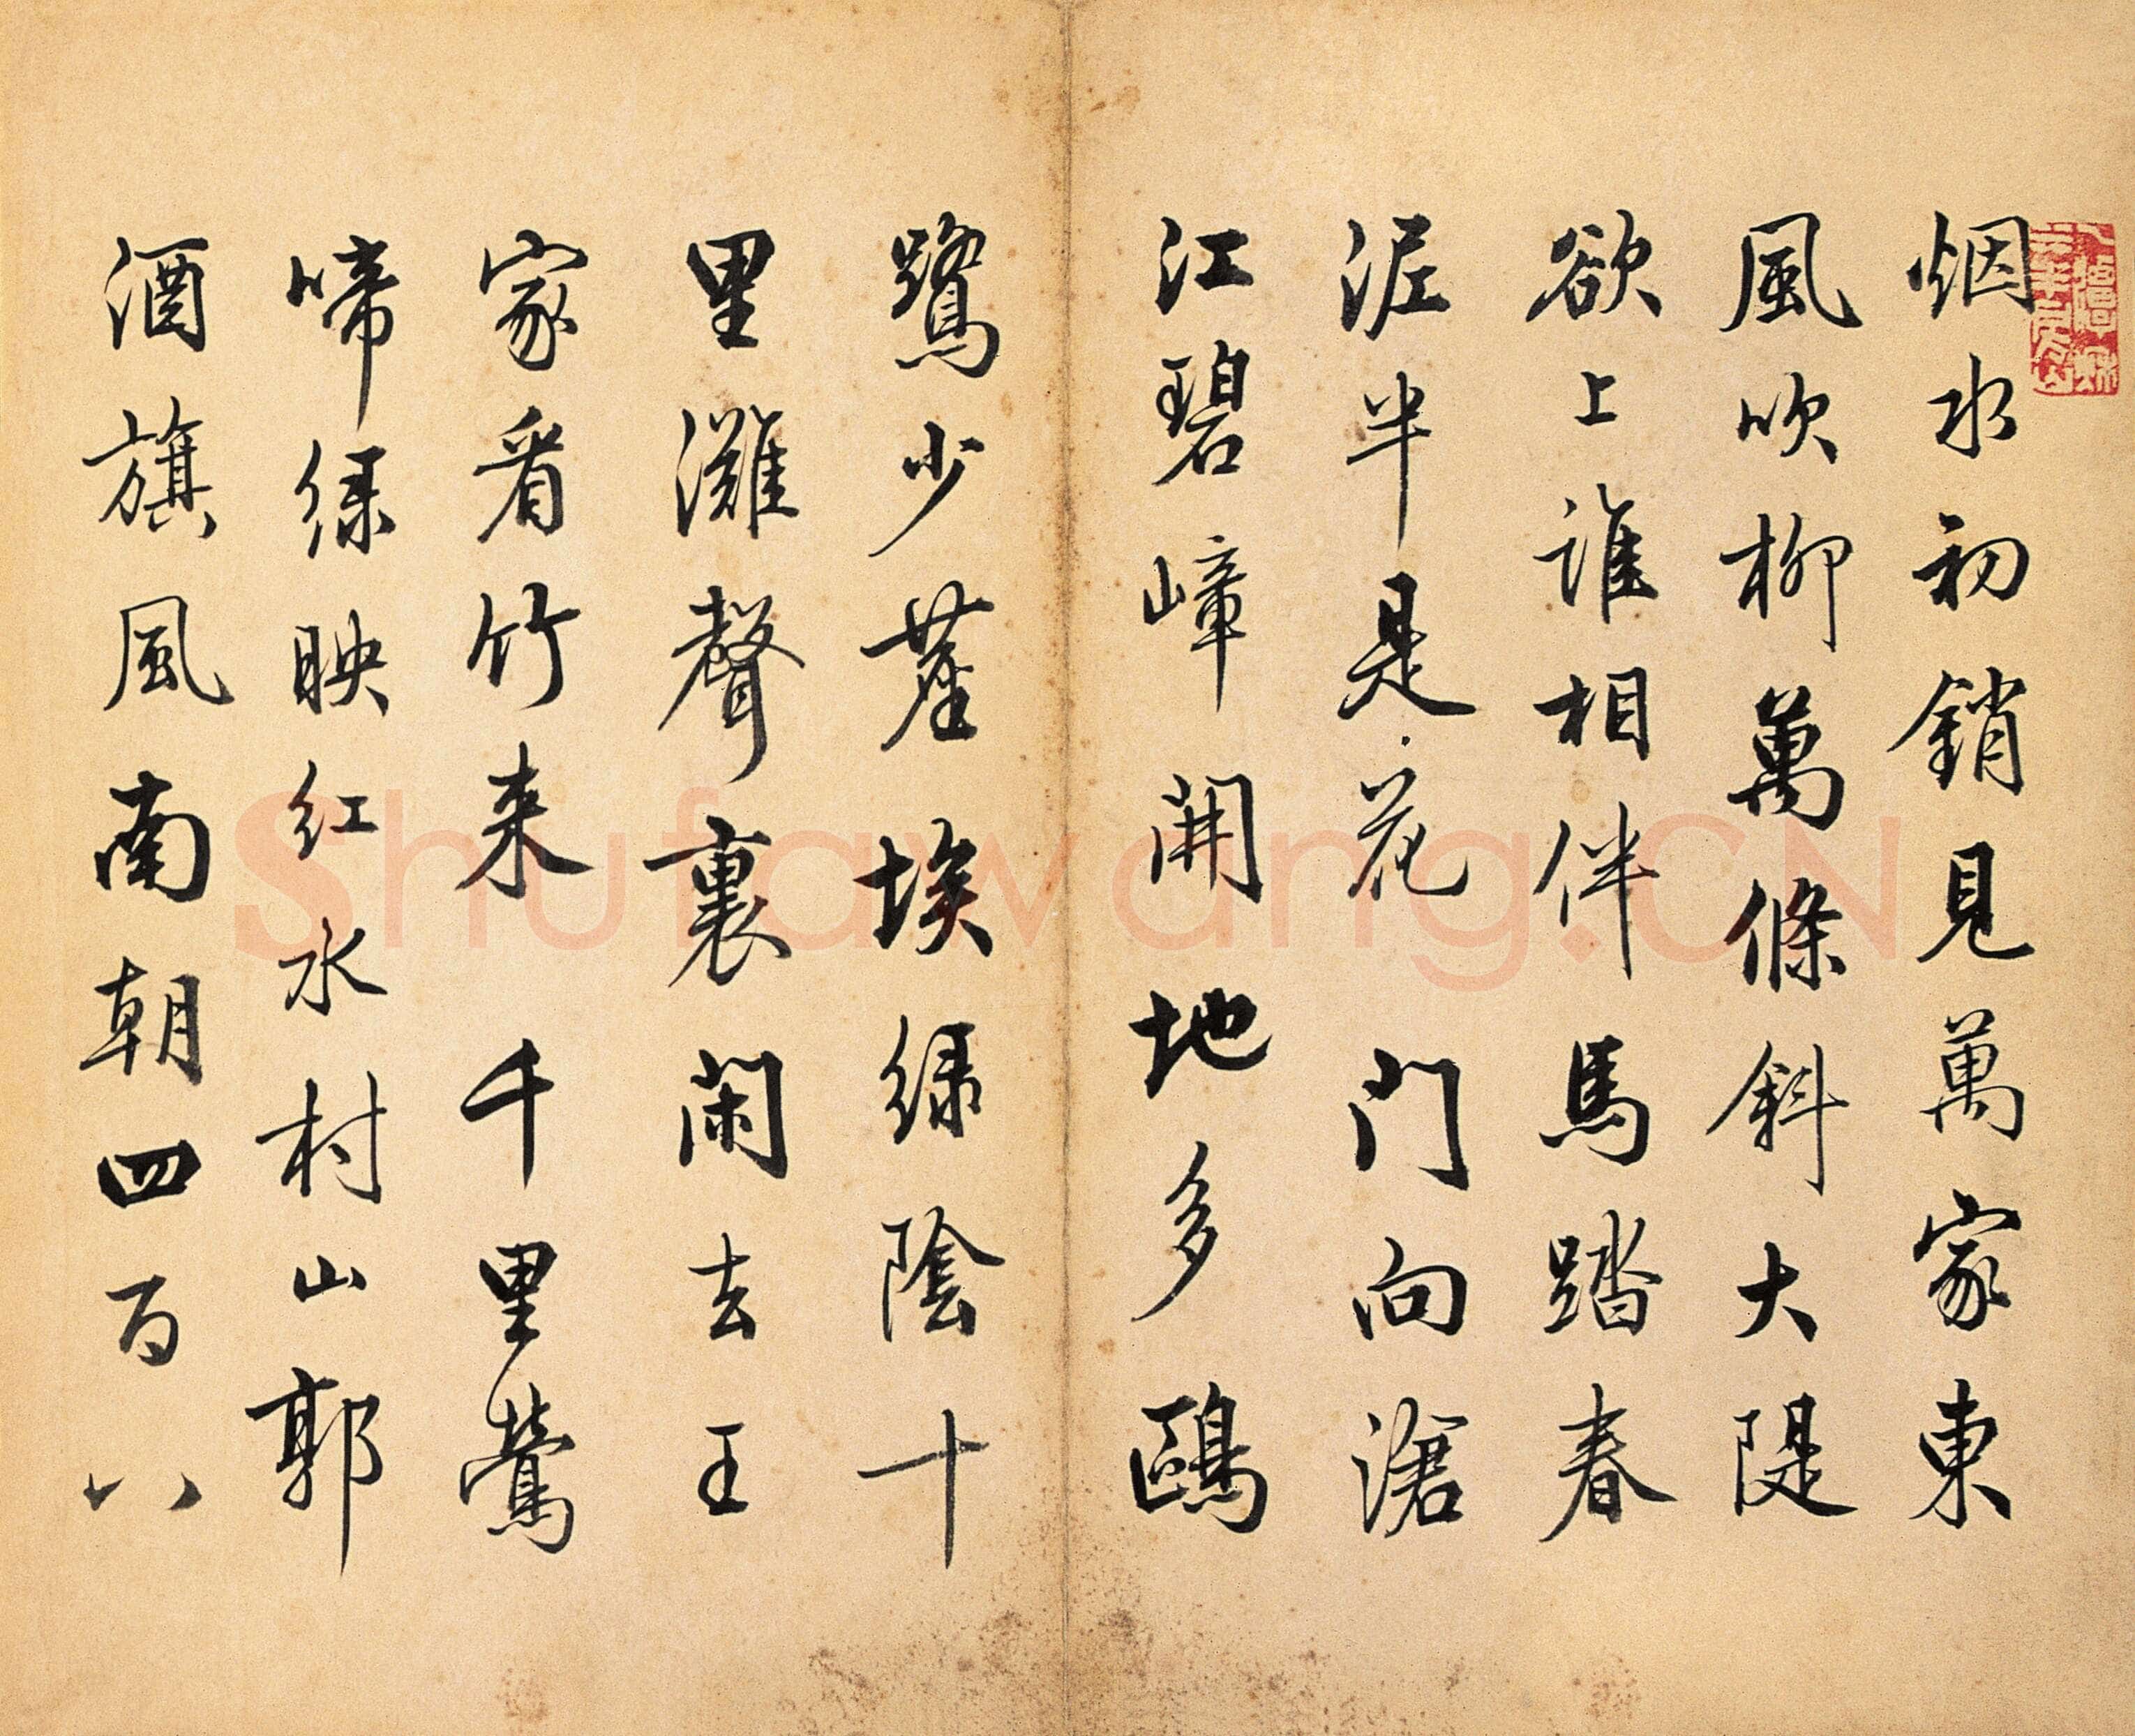 烟水初銷見萬家東
風吹柳萬條斜大隄
欲上誰相伴馬踏春
泥半是花门向滄
江碧嶂開地多鷗
鷺少塵埃綠陰十
里灘聲裏闲去王
家看竹来千里鶯
啼绿映红水村山郭
酒旗風南朝四百八
Shufawang.CN